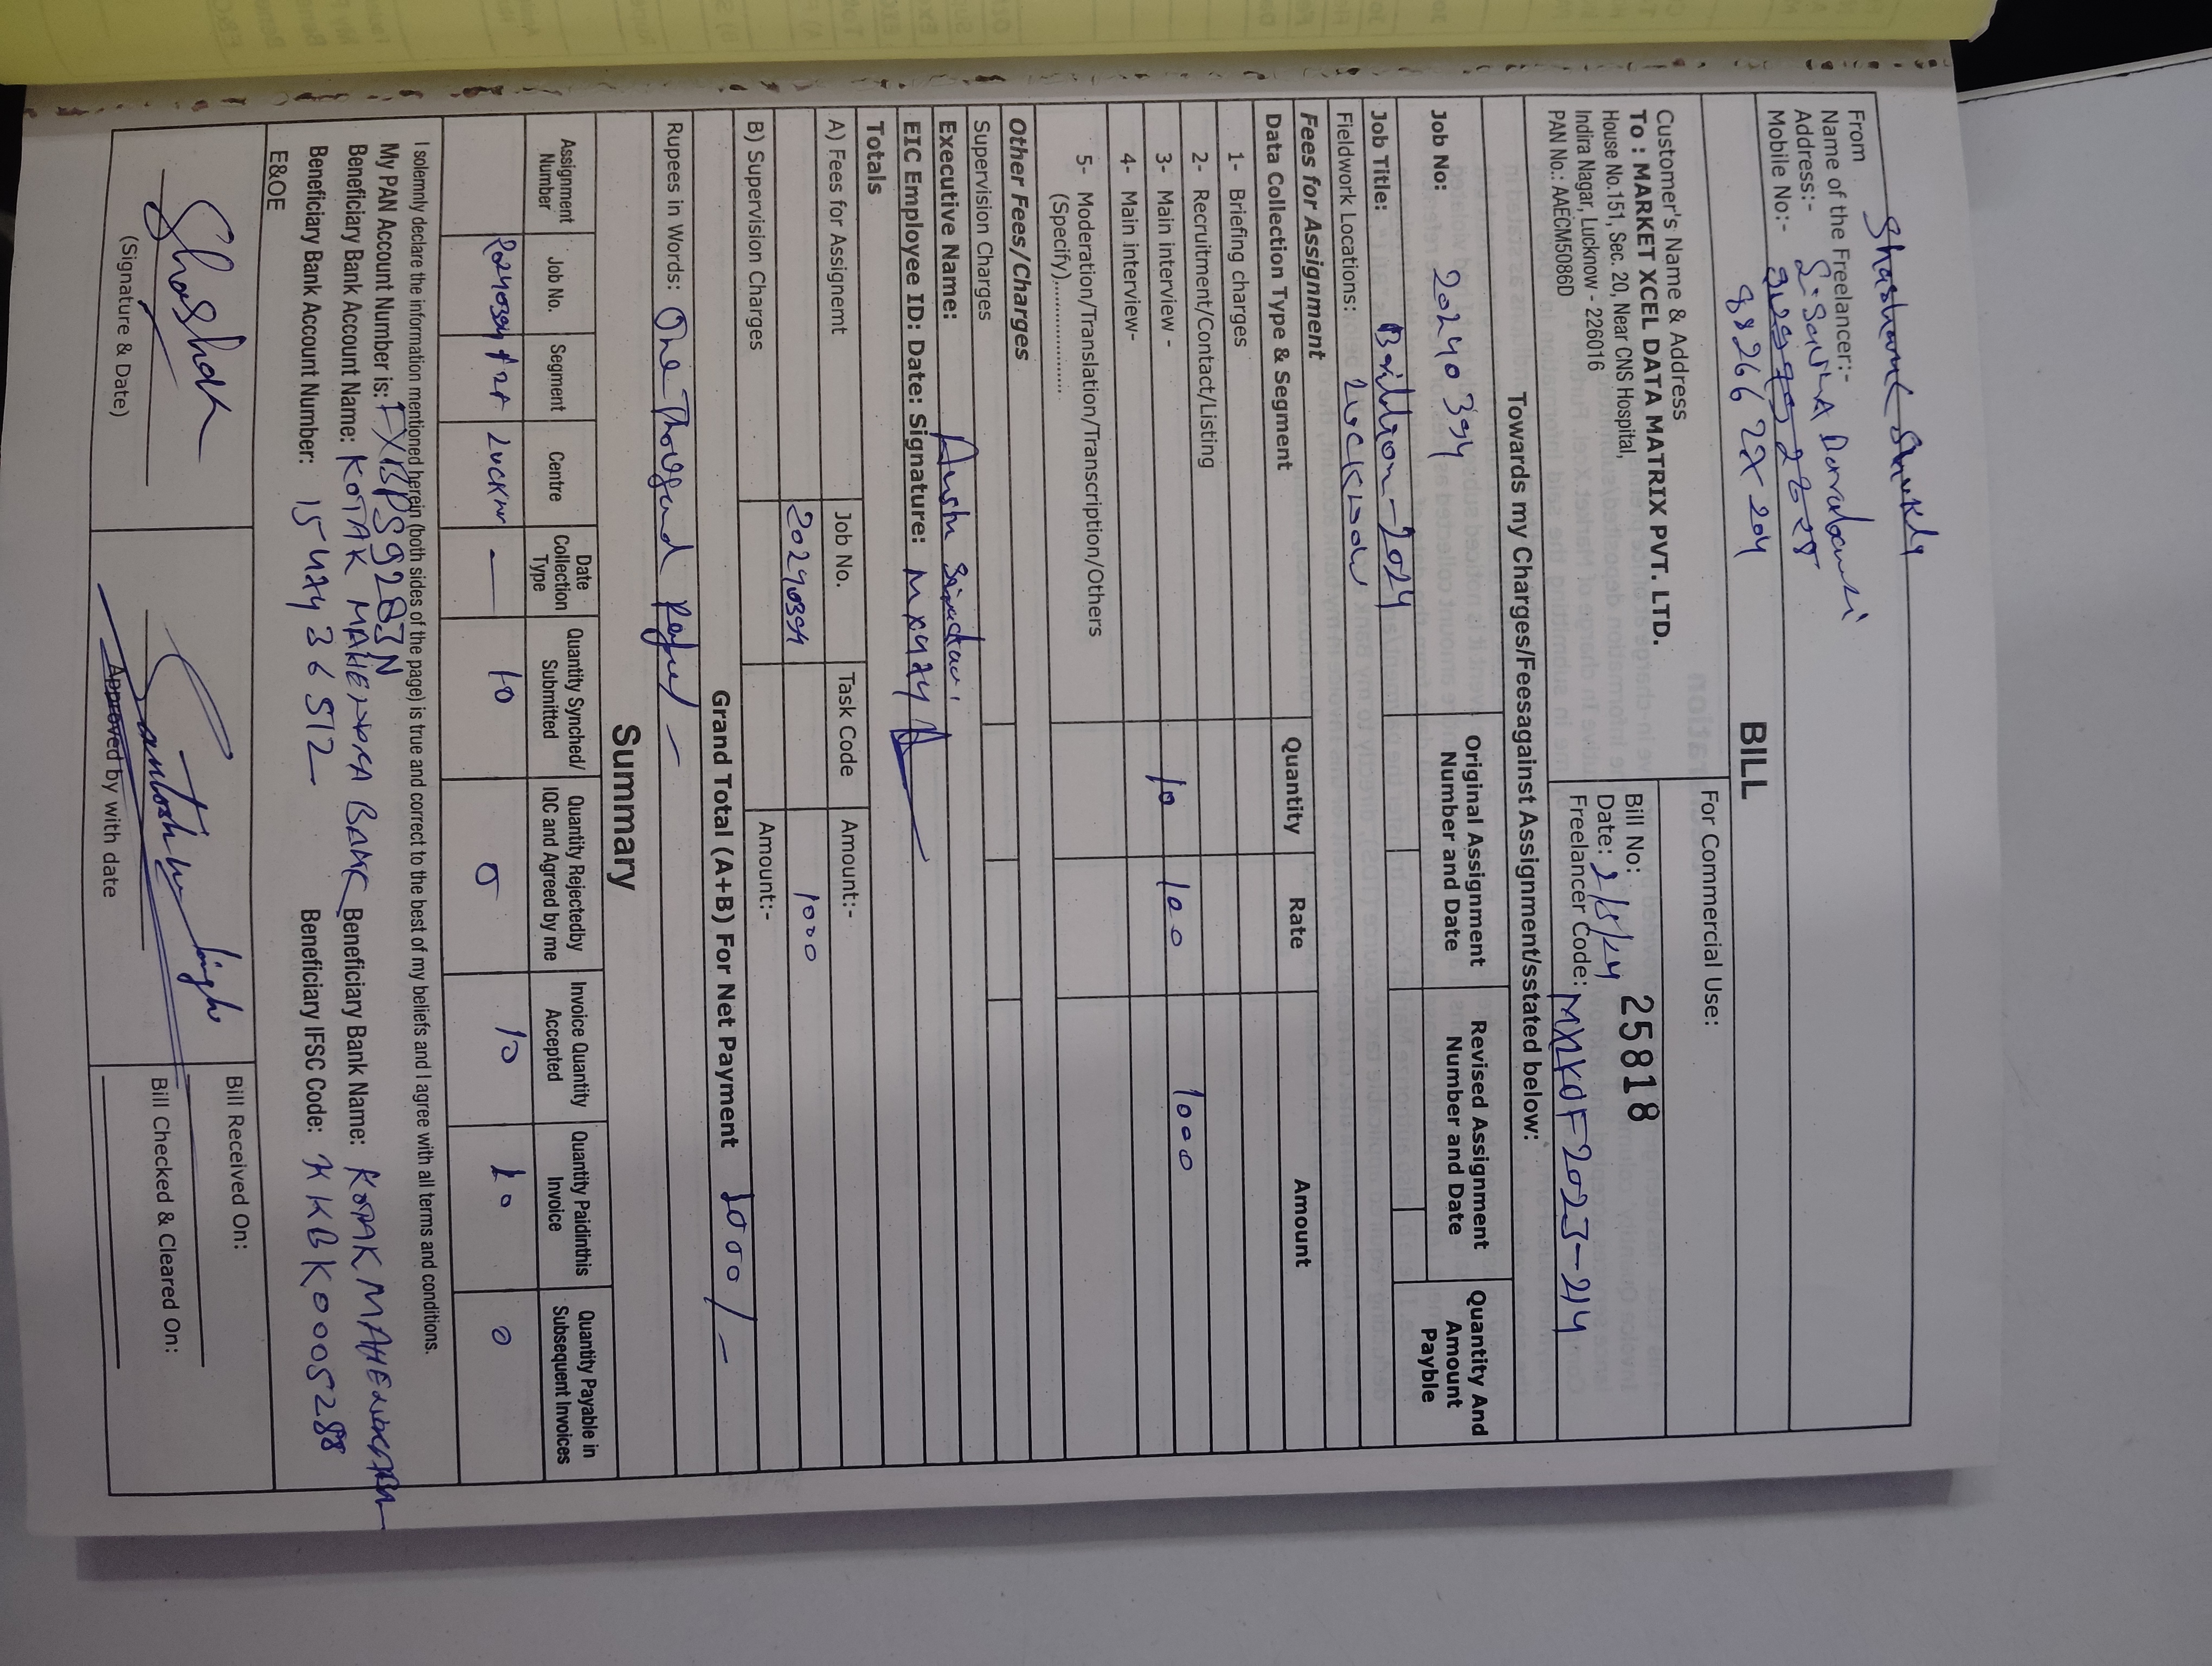 From
Name of the Freelancer:- Shashank Shukla
Address:-
Mobile No:-
BILL
For Commercial Use:
Customer's Name & Address
To : MARKET XCEL DATA MATRIX PVT. LTD.
House No.151, Sec. 20, Near CNS Hospital,
Indira Nagar, Lucknow - 226016
PAN No.: AAECM5086D
Bill No: 25818
Date: 2/5/24
Freelancer Code:
Towards my Charges/Feesagainst Assignment/sstated below:
Job No: 20240394
Original Assignment Number and Date
Revised Assignment Number and Date
Quantity And Amount Payble
Job Title: 2024
Fieldwork Locations: Lucknow
Fees for Assignment
Data Collection Type & Segment Quantity Rate Amount
1- Briefing charges
2- Recruitment/Contact/Listing
3- Main interview - 10 100 1000
4- Main interview-
5- Moderation/Translation/Transcription/Others
(Specify)..................
Other Fees/Charges
Supervision Charges
Executive Name:
EIC Employee ID: Date: Signature:
Totals
Job No. Task Code Amount:-
A) Fees for Assignemt 20240394 1000
B) Supervision Charges Amount:-
Grand Total (A+B) For Net Payment 1000/-
Rupees in Words: One Thousand
Summary
Assignment Number
Job No.
Segment
Centre
Date Collection Type
Quantity Synched/ Submitted
Quantity Rejectedby IQC and Agreed by me
Invoice Quantity Accepted
Quantity Paidinthis Invoice
Quantity Payable in Subsequent Invoices
20240394 — 10 0 10 10 0
I solemnly declare the information mentioned herein (both sides of the page) is true and correct to the best of my beliefs and I agree with all terms and conditions.
My PAN Account Number is:
Beneficiary Bank Account Name: KOTAK MAHENDRA BANK Beneficiary Bank Name: KOTAK
Beneficiary Bank Account Number: Beneficiary IFSC Code: KKBK0005288
E&OE
(Signature & Date)
Approved by with date
Bill Received On:
Bill Checked & Cleared On: